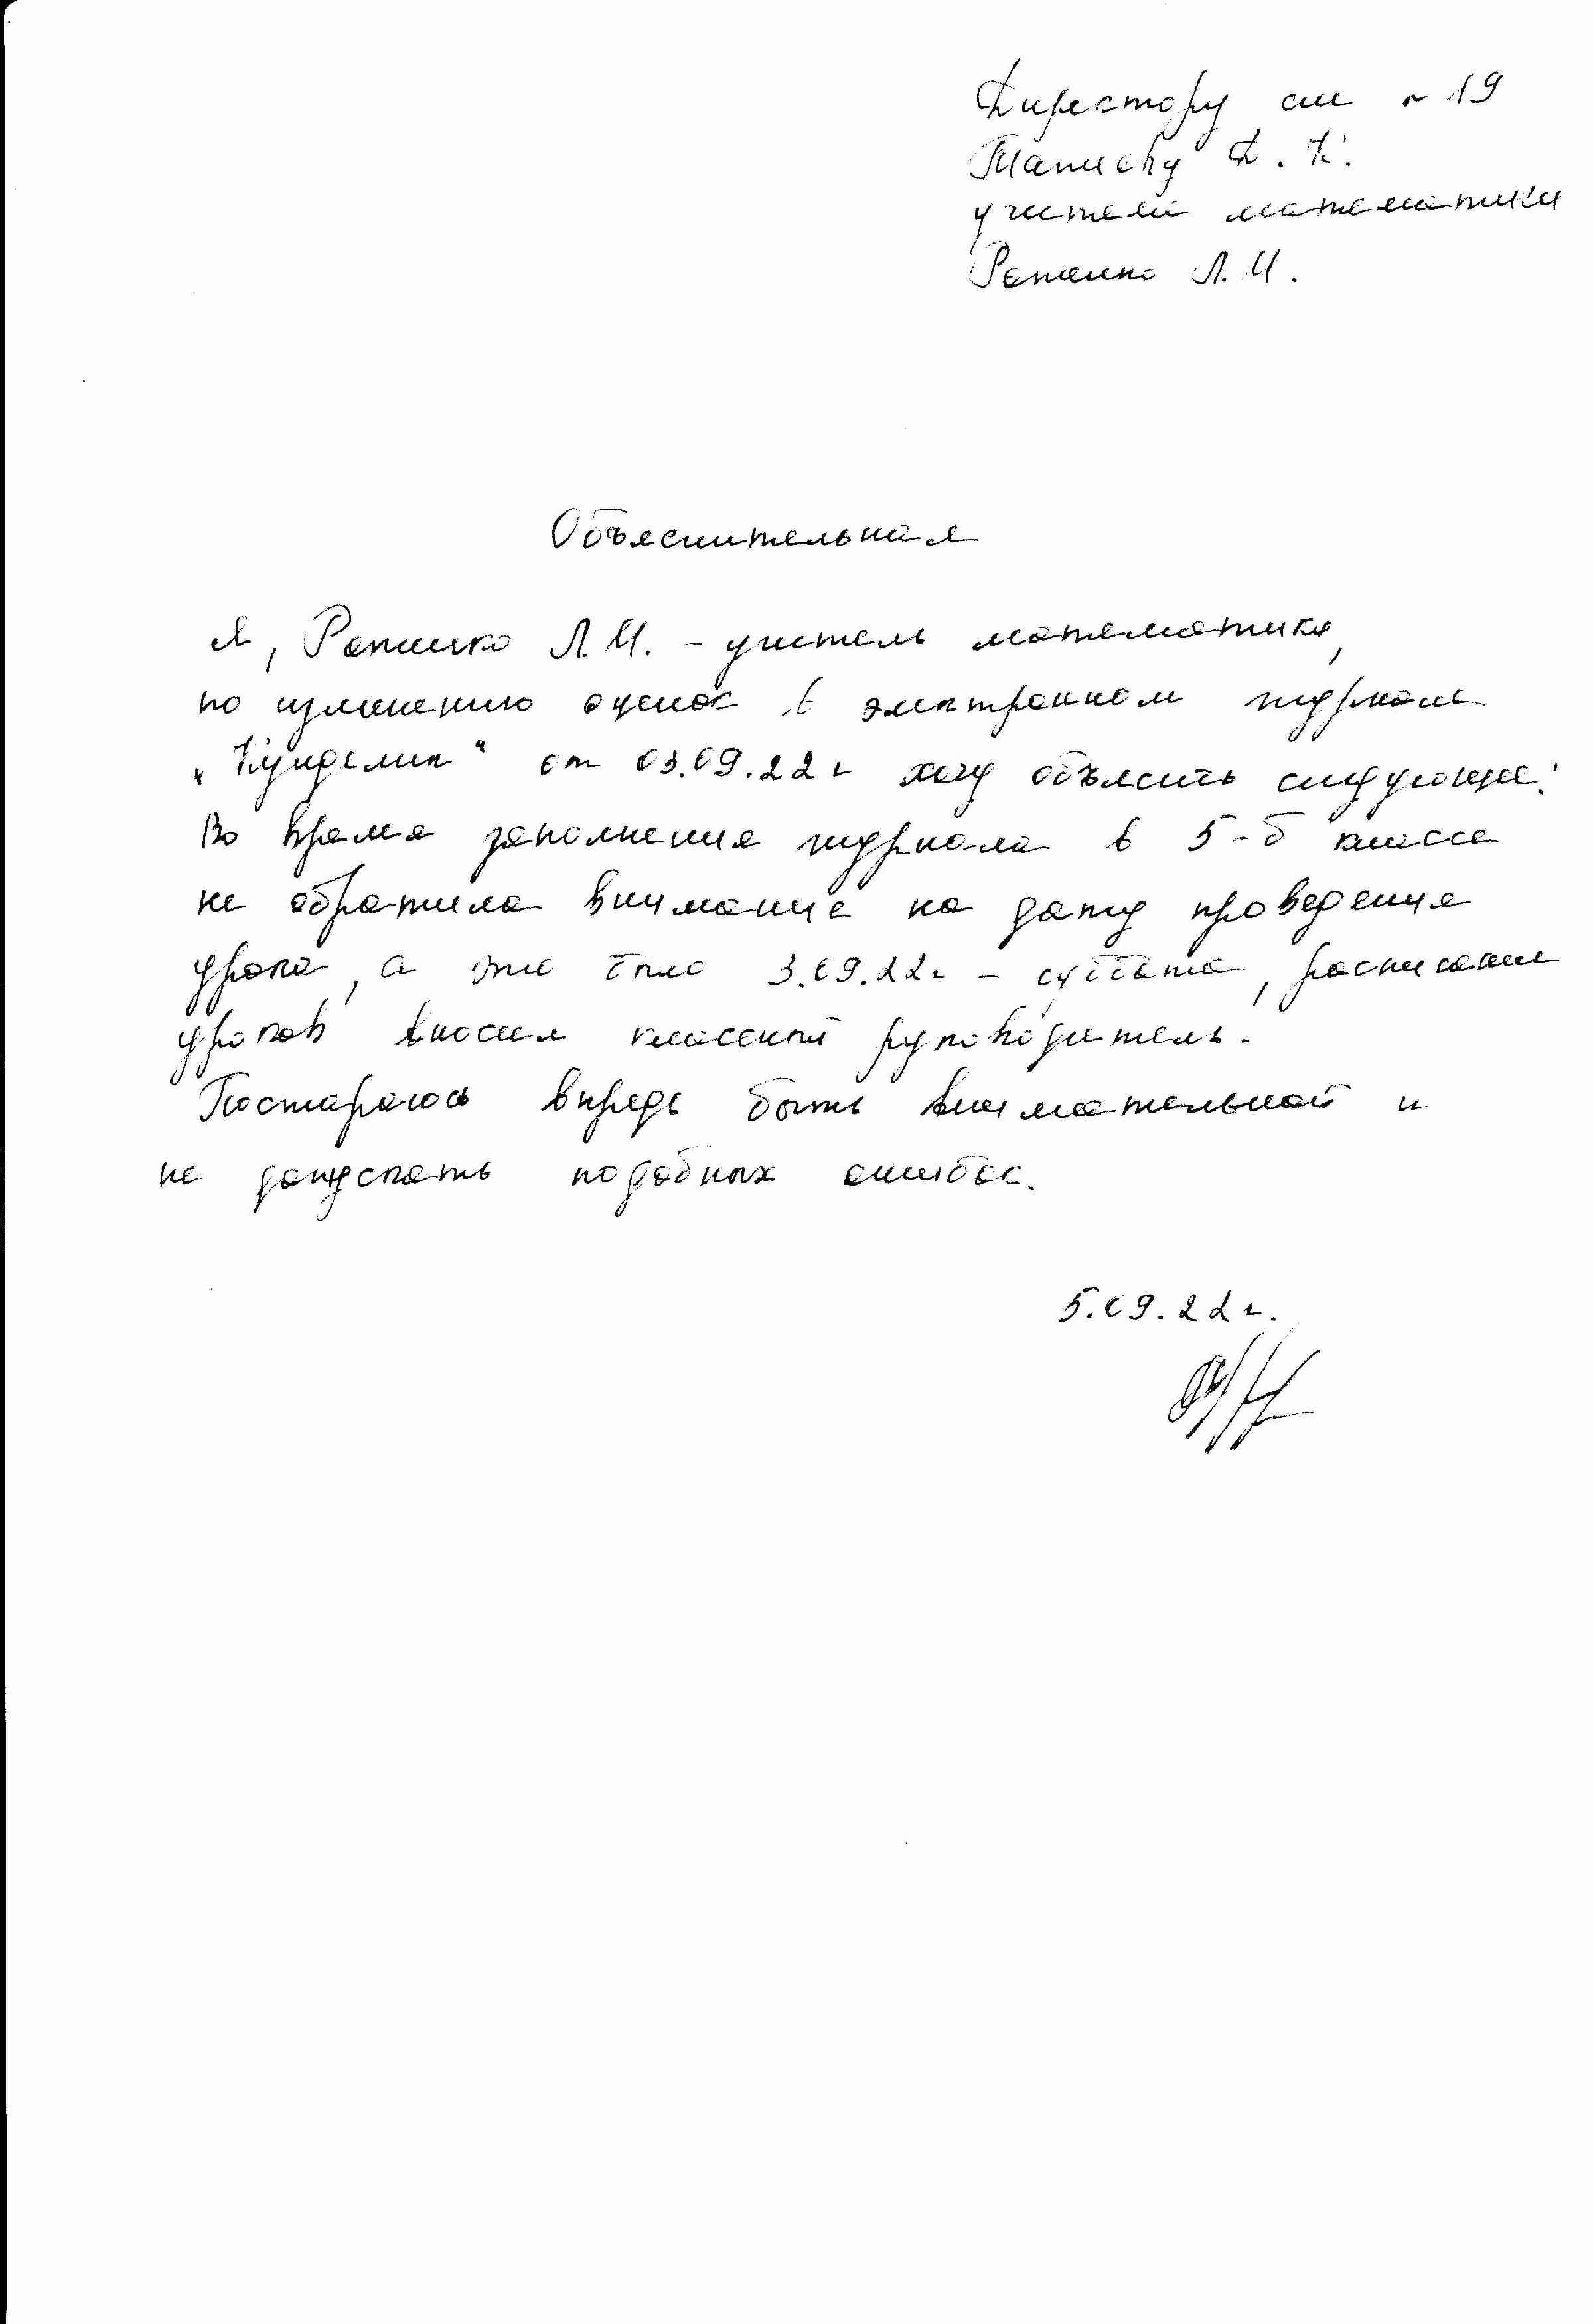 Директору сш № 19
Тапиеву Д. К.
учителя математики
Репинко Л. И.
Объяснительная
Я, Репинко Л. И. - учитель математики,
по изменению оценок в электронном журнале
"Кунделик" от 03.09.22 г хочу объяснить следующее:
Во время заполнения журнала в 5-б классе
не обратила внимание на дату проведения
урока, а это было 3.09.22г - суббота, расписание
уроков вносил классный руководитель.
Постараюсь впредь быть внимательной и
не допускать подобных ошибок.
5.09.22 г.